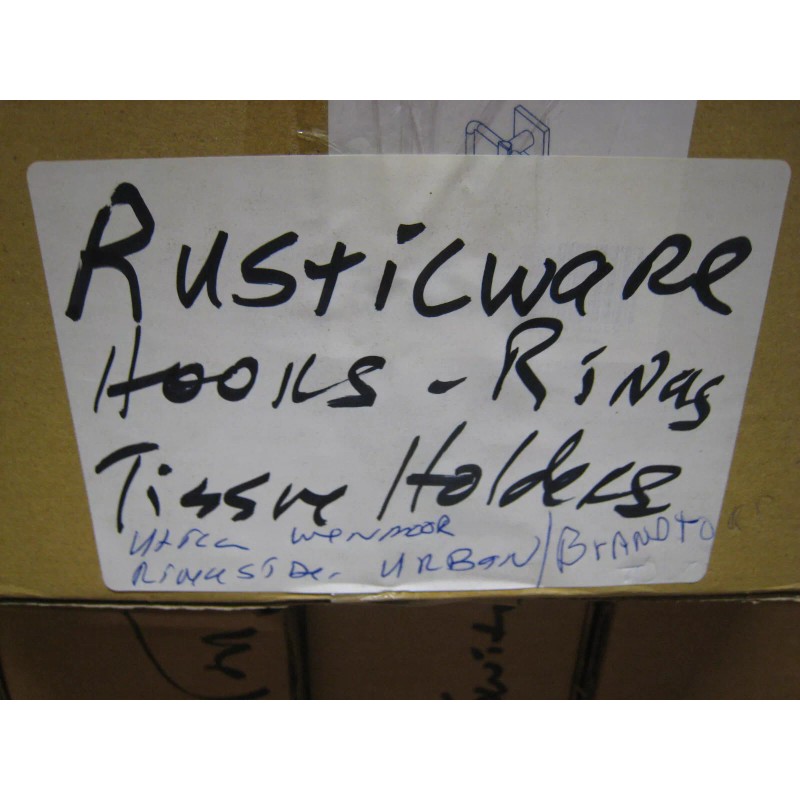 Rusticware
Hooks - Rings
Tissue Holders
Utica Windsor
Riverside - URBAN / BrANDtown